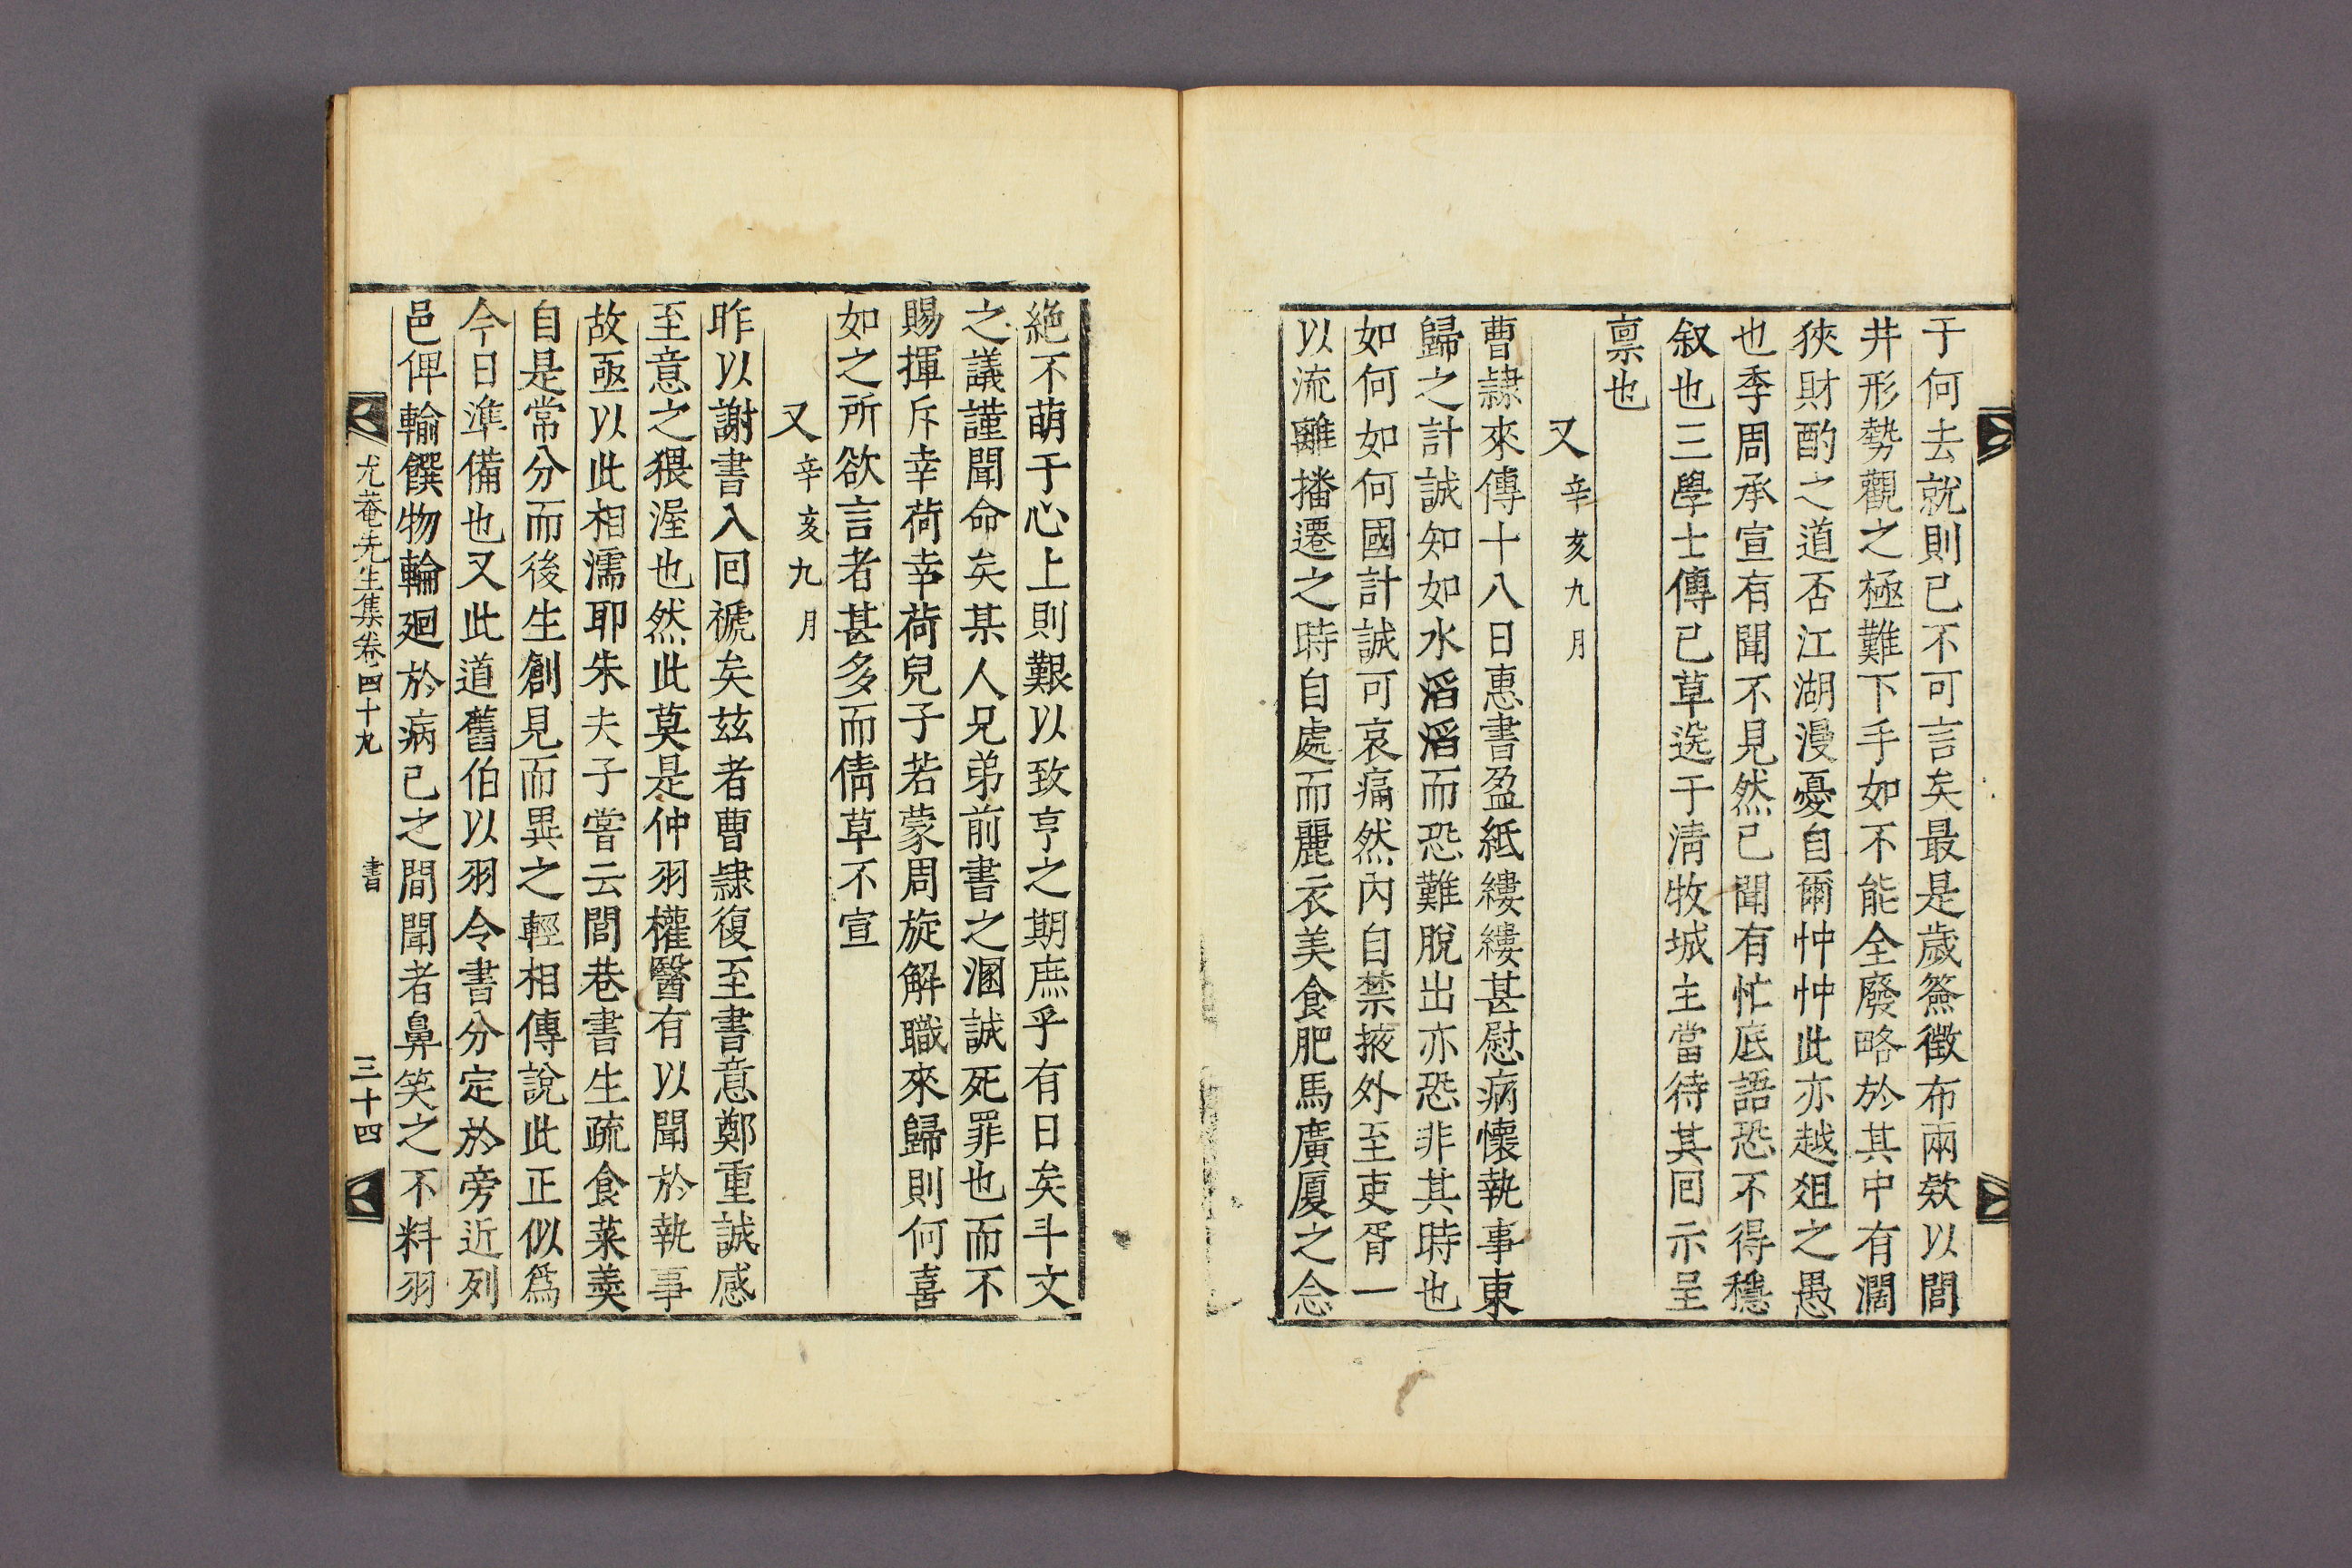 于何去就則已不可言矣最是歲簽徵布兩欸以閭
井形勢觀之極難下手如不能全廢略於其中有濶
狹財酌之道否江湖漫憂自爾忡忡此亦越爼之愚
也季周承宣有聞不見然已聞有忙底語恐不得穩
叙也三學士傳已草送于淸牧城主當待其囘示呈
禀也
又辛亥九月
曹隷來傳十八日惠書盈紙縷縷甚慰病懷執事東
歸之計誠知如水滔滔而恐難脫出亦恐非其時也
如何如何國計誠可哀痛然內自禁掖外至吏胥一
以流離播遷之時自處而麗衣美食肥馬廣厦之念
絶不萌于心上則艱以致亨之期庶乎有日矣斗文
之議謹聞命矣某人兄弟前書之溷誠死罪也而不
賜揮斥幸荷幸荷兒子若蒙周旋解職來歸則何喜
如之所欲言者甚多而倩草不宣
又辛亥九月
昨以謝書入囘褫矣玆者曹隷復至書意鄭重誠感
至意之猥渥也然此莫是仲羽權醫有以聞於執事
故亟以此相濡耶朱夫子嘗云閭巷書生疏食菜羮
自是常分而後生創見而異之輕相傳說此正似爲
今日準備也又此道舊伯以羽令書分定於旁近列
邑俾輸饌物輪廻於病已之間聞者鼻笑之不料羽
尤菴先生集卷四十九 書 三十四